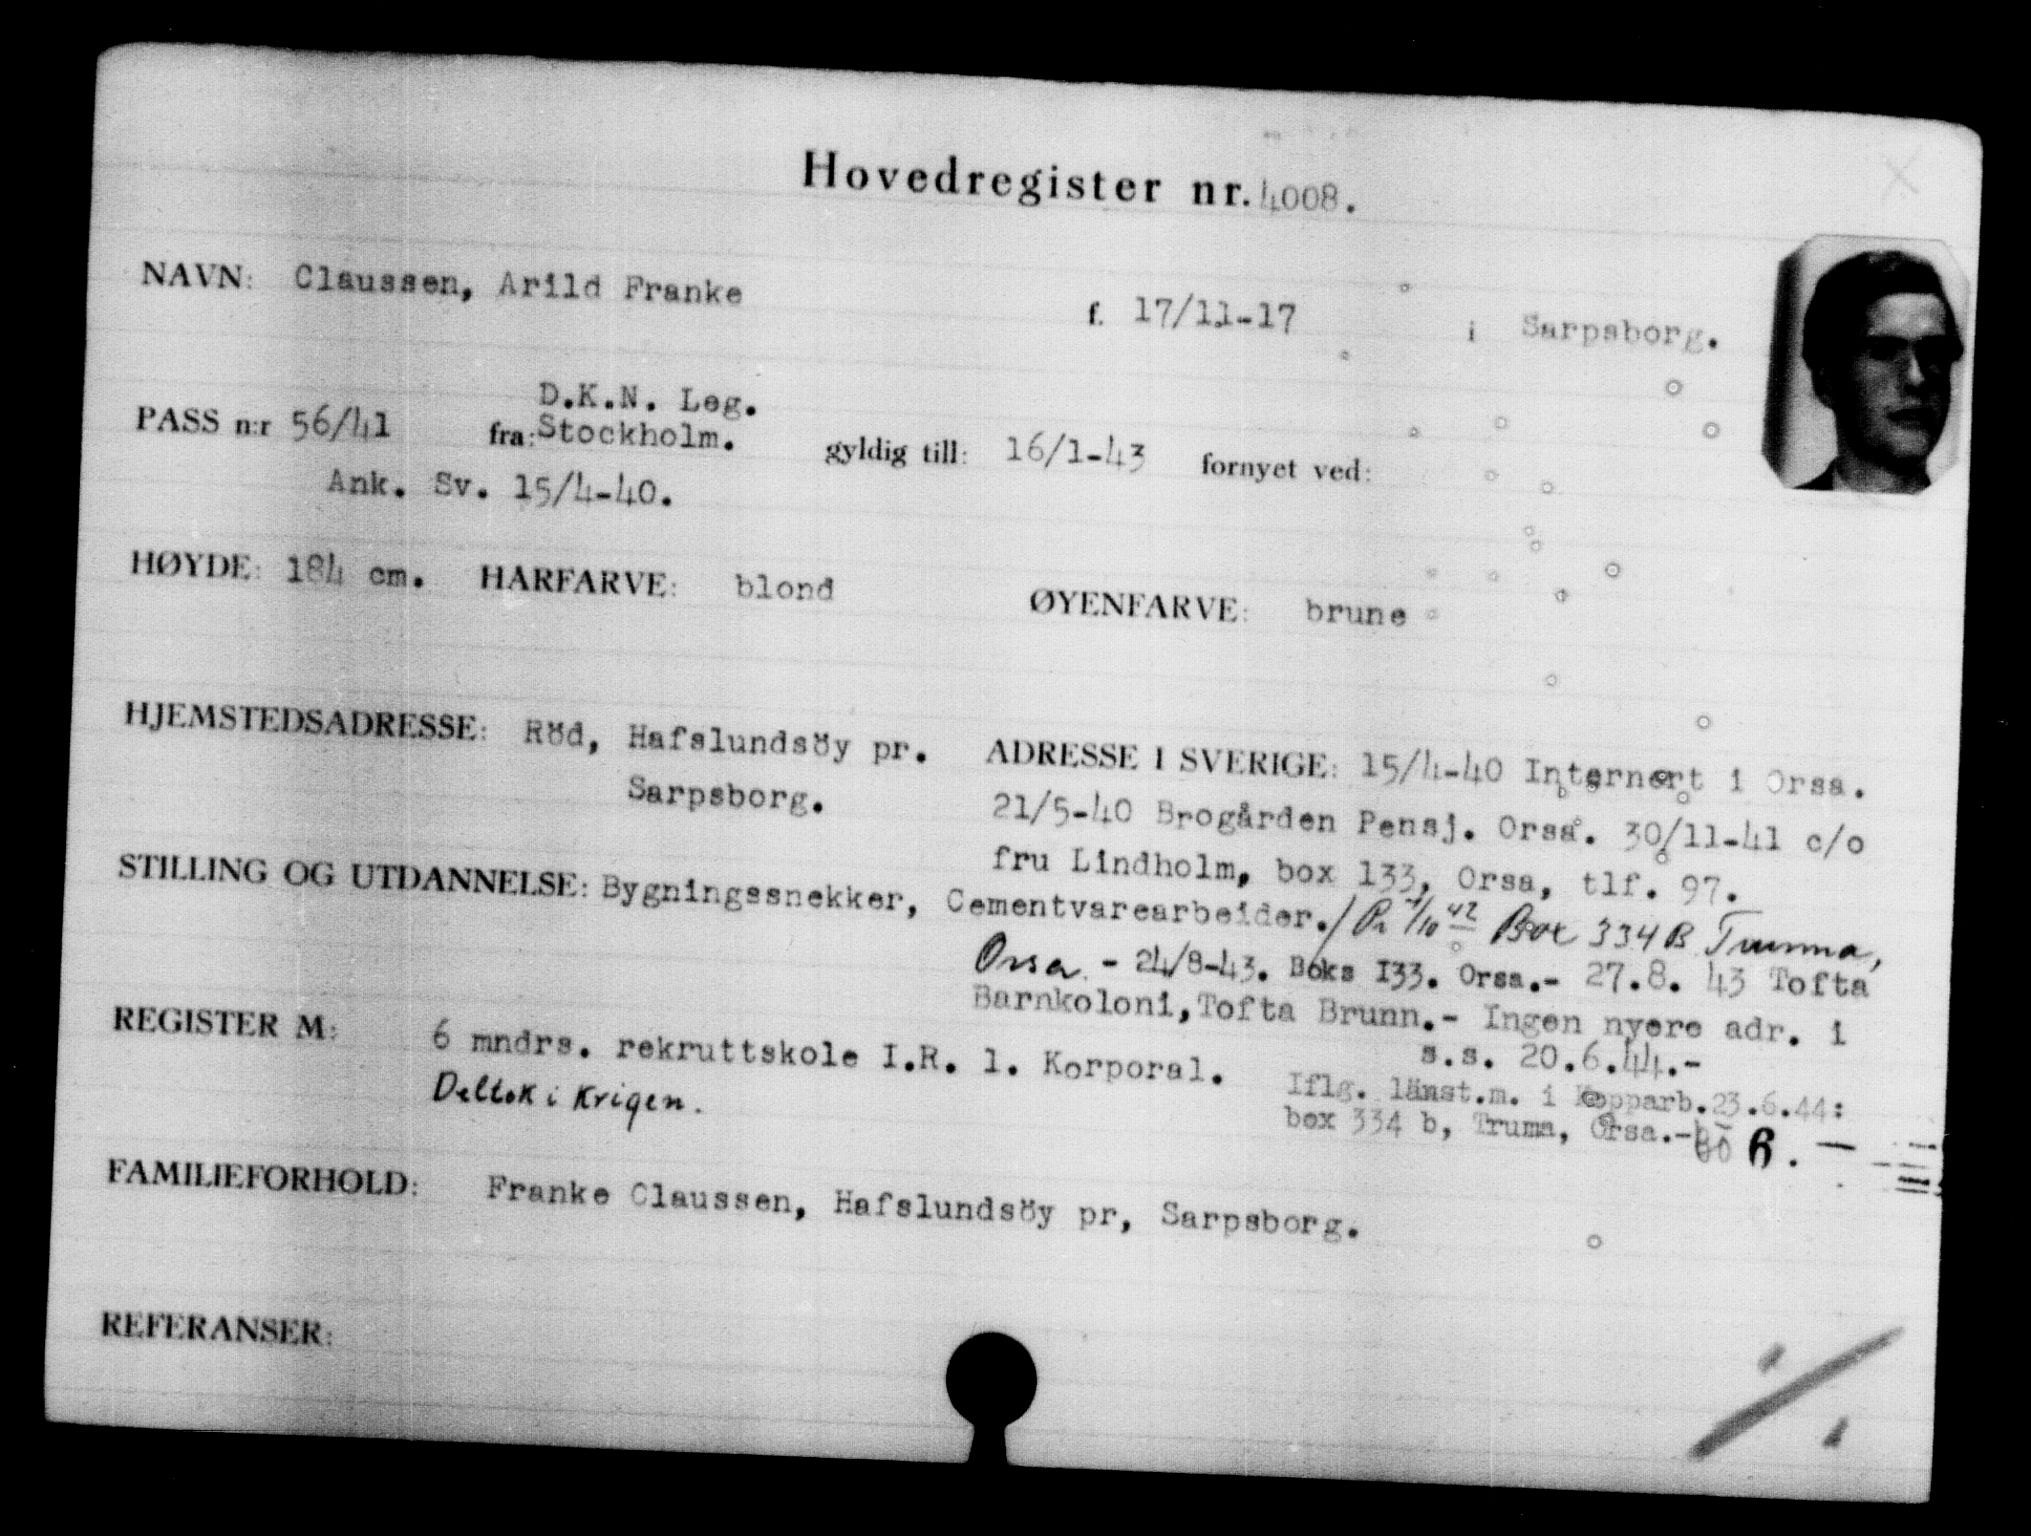 Hovedregister nr. 4008.
NAVN: Claussen, Arild Franke f. 17/11-17 i Sarpsborg.
D.K.N. Leg.
PASS n:r 56/41 fra: Stockholm. gyldig till: 16/1-43 fornyet ved:
Ank. Sv. 15/4-40.
HØYDE: 184 cm. HARFARVE: blond ØYENFARVE: brune
HJEMSTEDSADRESSE: Röd, Hafslundsöy pr.
Sarpsborg.
ADRESSE I SVERIGE: 15/4-40 Internert i Orsa.
21/5-40 Brogården Pensj. Orsa. 30/11-41 c/o
fru Lindholm, box 133, Orsa, tlf. 97.
STILLING OG UTDANNELSE: Bygningssnekker, Cementvarearbeider./
/10 42 Box 334 B Trumma,
Orsa. - 24/8-43. Boks I33. Orsa.- 27.8. 43 Tofta
Barnkoloni, Tofta Brunn.- Ingen nyere adr. i
s.s. 20.6.44.-
Iflg. länst.m. i Kopparb. 23.6.44:
box 334 b, Truma, Orsa.-
REGISTER M: 6 mndrs. rekruttskole I.R. 1. Korporal.
Deltok i Krigen.
FAMILIEFORHOLD: Franke Claussen, Hafslundsöy pr, Sarpsborg.
REFERANSER: